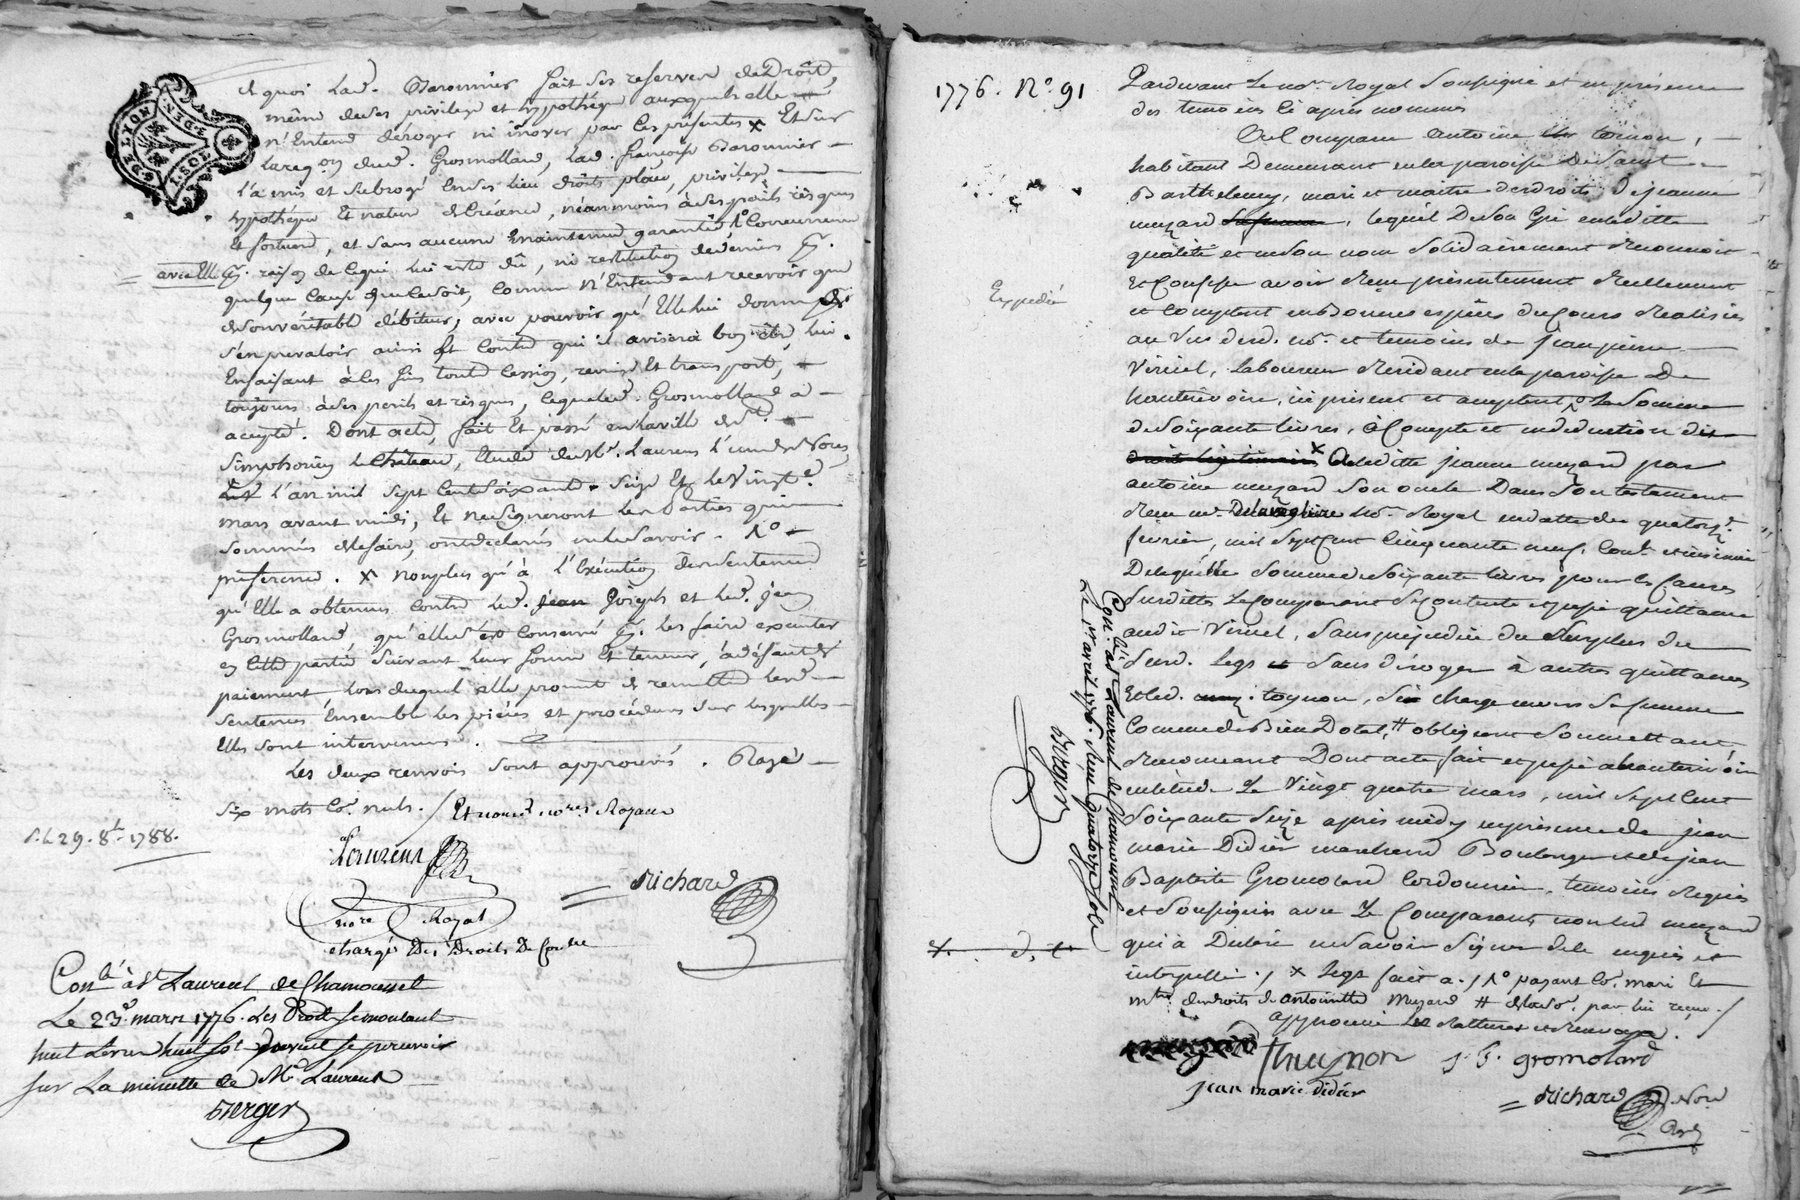 GEN. DE LYON
1. SOL
et quoi lad. Baronnier fait ses reserves de Droit,
même de ses privilege et hypotheque auxquels elle
n'Entend deroger ni inover par les presentes x Et sur
la req.on dud. Grosmolland, lad. françoise Baronnier
l'a mis et subrogé en ses lieu droits place, privilege
hypotheque Et nature de Créance, néanmoins à ses perils risques
Et fortune, et sans aucune maintenue garantie
avec Elle
raison de ce qui lui reste dû, ni restitution de deniers
quelque Cause que ce soit, comme n'Entendant recevoir que
de son véritable débiteur, avec pouvoir qu'Elle lui donne
s'en prevaloir ainsi Et contre qui il avisera bon être, lui
En faisant à ces fins toute Cession, remise Et transport,
toujours à ses perils et risques, ce que led. Grosmolland a
acepté. Dont acte, fait Et passé en la ville de St.
Simphorien le Château, Etude de Me. Laurens l'un de Nores
l'an mil sept Cent soixante Seize Et le Vingt
mars avant midi, Et ne signeront les Parties qui
sommées de le faire, ont déclaré ne le savoir. 1o
preference. x non plus qu'à l'Exécution de sentence
qu'Elle a obtenue contre led. Jean Joseph et led. Jean
Grosmolland, qu'elle Conserve les faire executer
en cette partie Suivant leur forme Et teneur, à défaut de
paiement lors duquel elle promet de remettre lesd.
sentences Ensemble les pièces et procédures sur lesquelles
Elles sont intervenues.
Les deux renvois sont approuvés. Rayé
six mots co. nuls. / Et nous nores. Royaux
Laurens
Richard
nore Royal
chargé Des Droits De Contre
S. le 29. 8t. 1788.
Conlé. à St Laurent de Chamousset
Le 23 mars 1776. Les Droits
huit Livres huit sols se pourvoir
sur La minutte de Me Laurens
Berger
1776. No 91
Pardevant Le no.re Royal Soussigné et en présence
des temoins ci après nommés
A Comparu antoine toinon,
habitant Demeurant en la paroisse De Saint
Barthelemy, mari et maitre des droits de jeanne
muzard, lequel De Son Gré en ladite
qualité et en Son nom Solidairement Reconnoit
Et Confesse avoir Reçu présentement Réellement
et comptant en Bonnes espèces du Cours Réalisées
au Vu dud. no.re et temoins de jean pierre
Viricel, Laboureur Résidant en la paroisse De
hauterivoire, ici présent et aceptent La Somme
de Soixante livres, à Compte et en déduction
x A ladite jeanne muzard par
antoine muzard Son oncle Dans Son testament
Reçu me. no.re Royal en datte du quatorze
fevrier, mil Sept Cent Cinquante neuf,
De laquelle Somme de Soixante livres pour les Causes
Susdittes Le Comparant Se contente et passe quittance
audit Viricel, Sans prejudice du Surplus du
Susd. Legs et Sans déroger à autres quittances
Et led. toynon, Se charge envers Sa femme
Comme de Bien Dotal, # obligeant Soumettant
Renonçant Dont acte fait et passé à hauterivoire
en étude Le Vingt quatre mars, mil Sept Cent
Soixante Seize après midy en présence de jean
marie Didier marchand Boulanger et de jean
Baptiste Gromolard Cordonnier, temoins Requis
et Soussignés avec Le Comparant non lad. muzard
qui a Déclaré ne Savoir Signer de ce enquise et
interpellée. / x legs fait a. / 1o payant co. mari Et
mtre. des droits de antoinette Muzard # par lui reçue. /
approuvé les Rattures et Renvois.
thuynon J. B. gromolard
jean marie didier
Richard Nore
Roy
Expédié
Con. lé. à St Laurent de Chamousset
Le 1er avril 1776. Reçu quatorze Sols
Berger